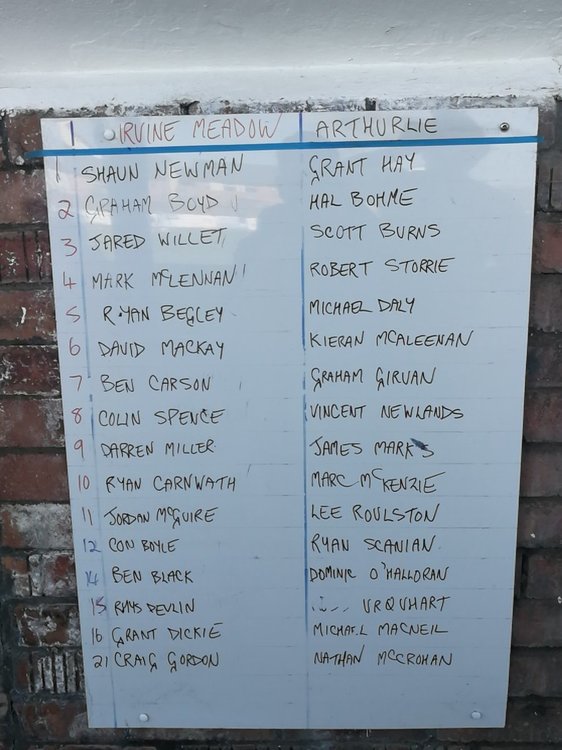 IRVINE MEADOW ARTHURLIE
1 SHAUN NEWMAN GRANT HAY
2 GRAHAM BOYD HAL BOHME
3 JARED WILLET SCOTT BURNS
4 MARK McLENNAN ROBERT STORRIE
5 RYAN BEGLEY MICHAEL DALY
6 DAVID MACKAY KIERAN MCALEENAN
7 BEN CARSON GRAHAM GIRVAN
8 COLIN SPENCE VINCENT NEWLANDS
9 DARREN MILLER JAMES MARKS
10 RYAN CARNWATH MARC McKENZIE
11 JORDAN McGUIRE LEE ROULSTON
12 CON BOYLE RYAN SCANIAN
14 BEN BLACK DOMINIC O'HALLORAN
15 RHYS DEVLIN URQUHART
16 GRANT DICKIE MICHAEL MACNEIL
21 CRAIG GORDON NATHAN McCROHAN